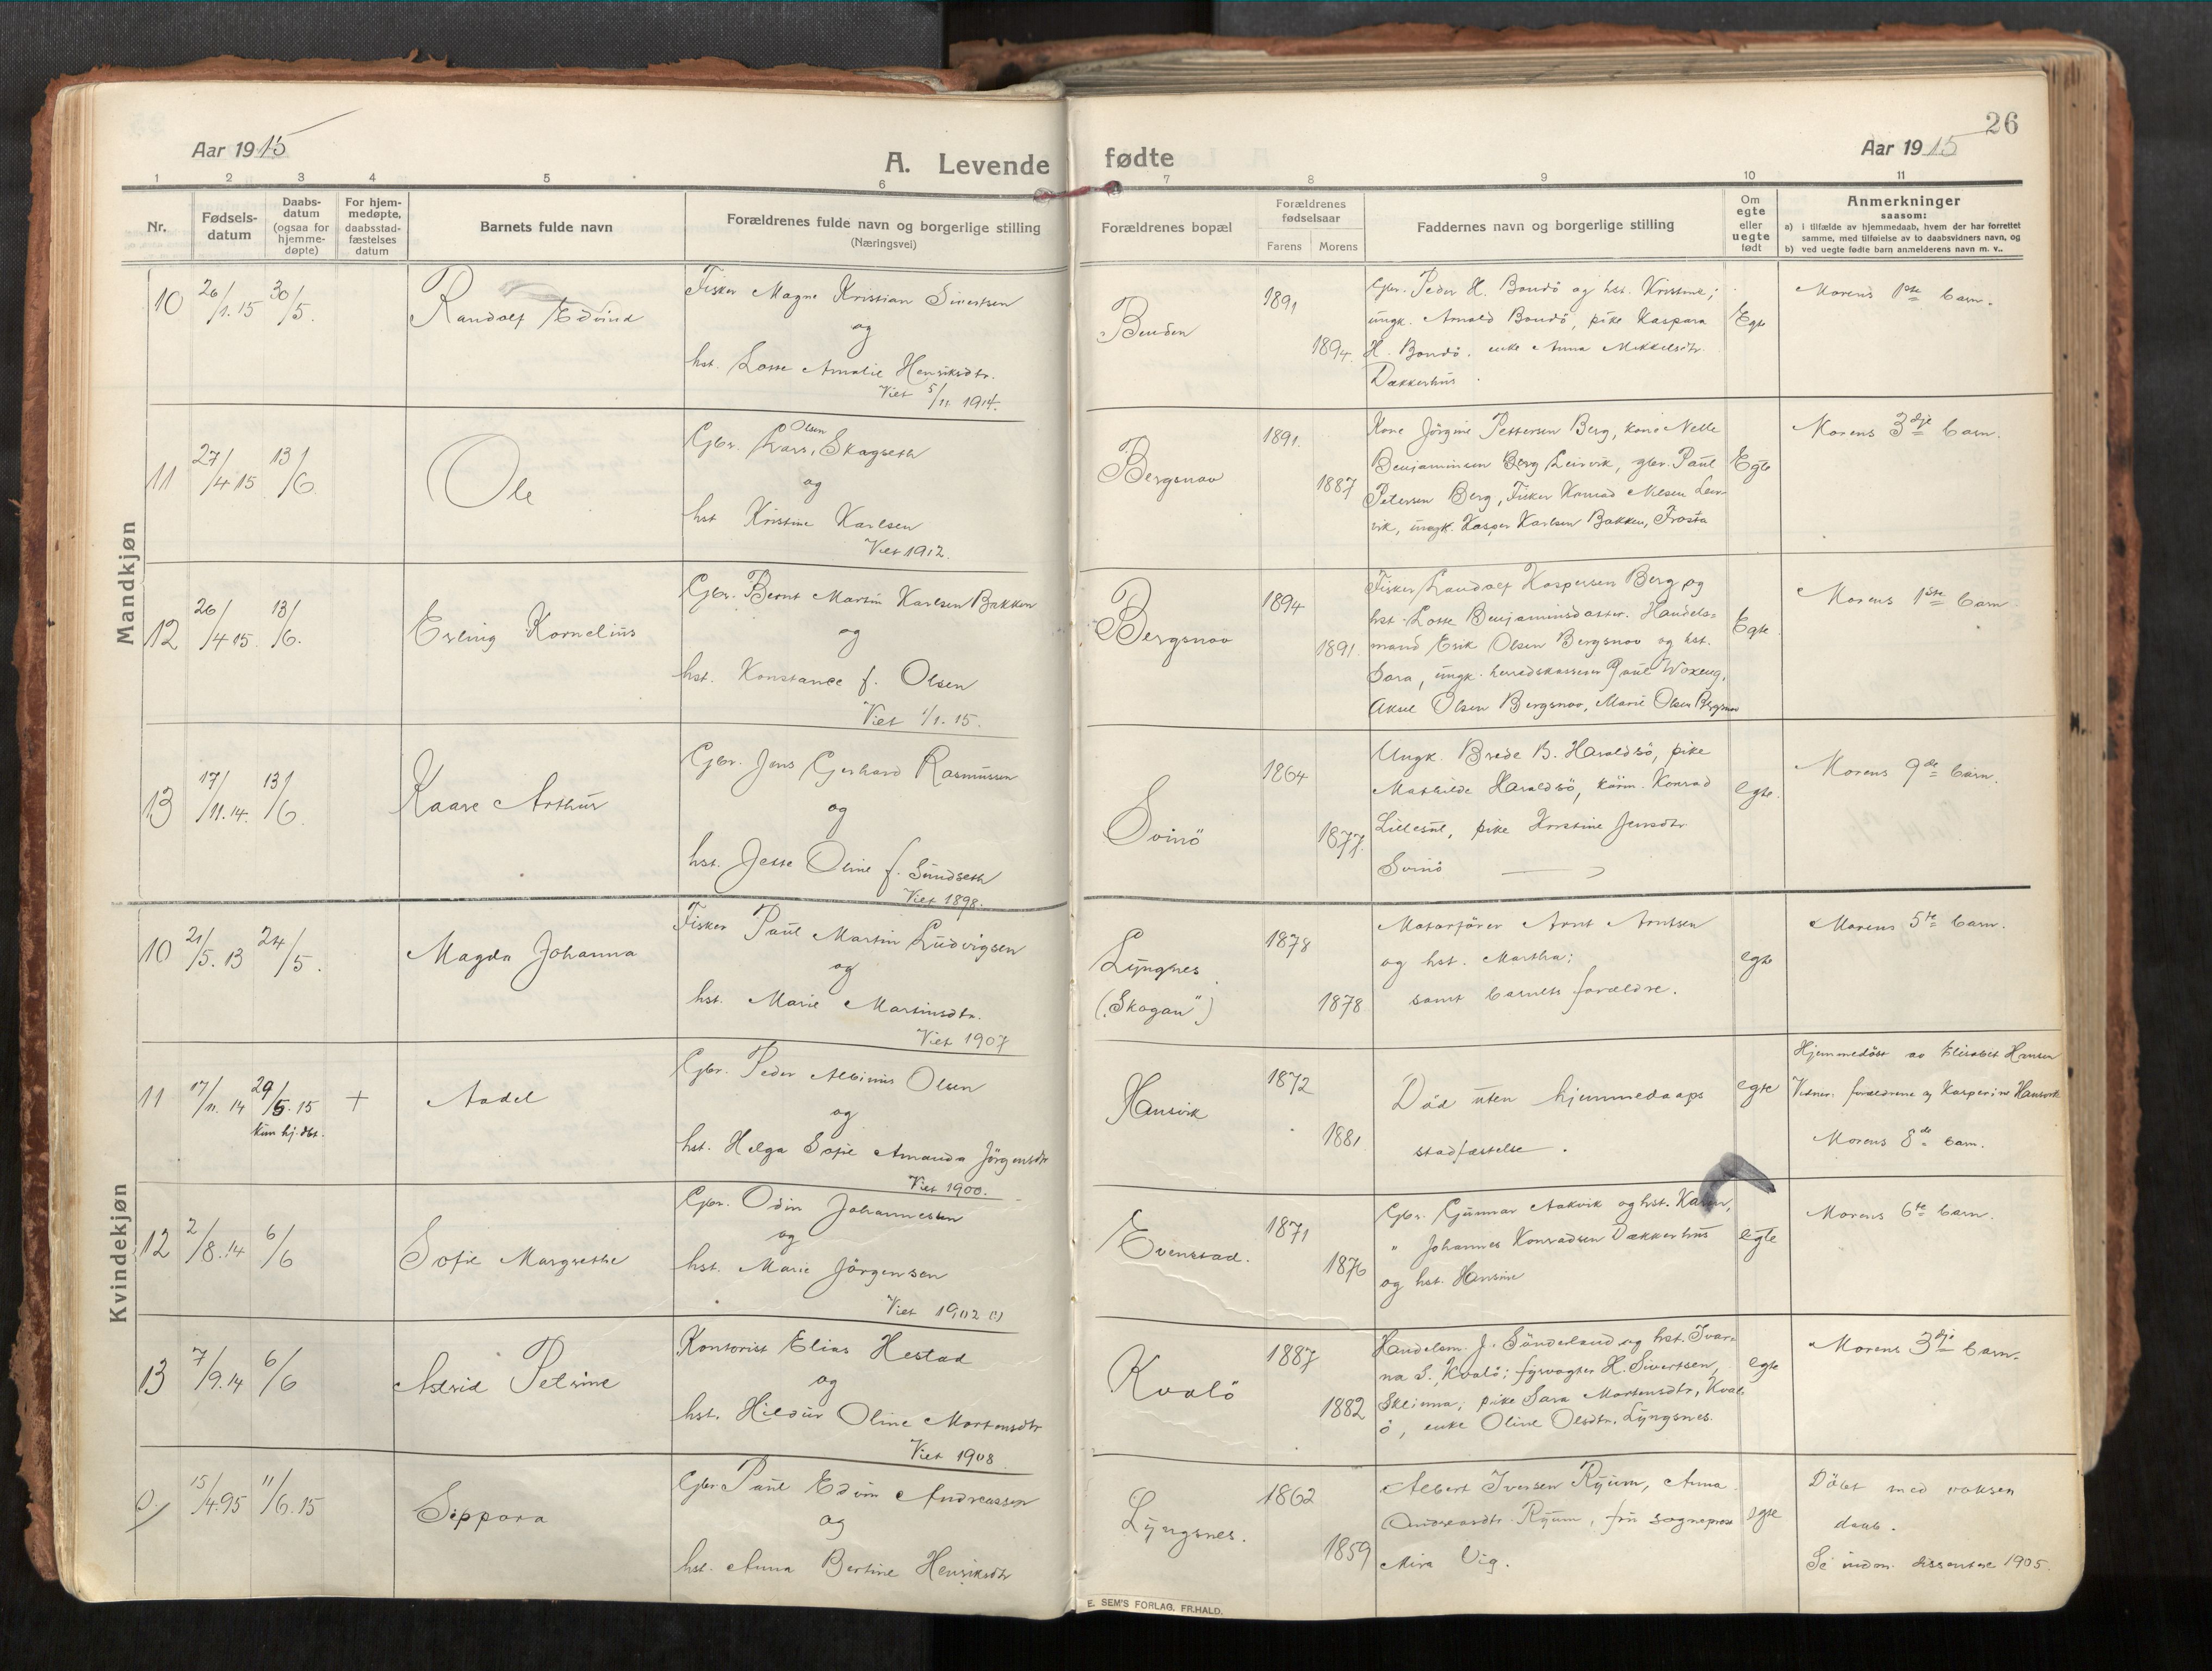 26
Aar 1915
A. Levende
fødte
Aar 1915
1 2 3 4 5 6 7 8 9 10 11
Nr.
Fødsels-
datum
Daabs-
datum
(ogsaa for
hjemme-
døpte)
For hjem-
medøpte,
daabsstad-
fæstelses
datum
Barnets fulde navn
Forældrenes fulde navn og borgerlige stilling
(Næringsvei)
Forældrenes bopæl
Forældrenes
fødselsaar
Farens
Morens
Faddernes navn og borgerlige stilling
Om
egte
eller
uegte
født
Anmerkninger
saasom:
a) i tilfælde av hjemmedaab, hvem der har forrettet
samme, med tilføielse av to daabsvidners navn, og
b) ved uegte fødte barn anmelderens navn m. v..
Mandkjøn
10
26/1. 15
30/5.
Randolf Edvind
Fisker Magne Kristian Sivertsen
og
hst. Lotte Amalie Henriksdtr.
Viet 5/11 1914.
1891
1894.
Gbr. Peder H. Bondö og hst. Kristine;
ungk. Arnold Bondö, pike Kaspara
H. Bondö, enke Anna Mikkelsdtr.
Dækkerhus
Egte
Morens 1ste barn.
11
27/4 15
13/6
Ole
Gbr. Lars Olsen Skagseth
og
hst Kristine Karlsen
Viet 1912.
Bergsnov
1891.
1887
Kone Jörgine Pettersen Berg, kone Nelle
Benjaminsen Berg Leirvik, gbr. Paul
Petersen Berg, Fisker Konrad Nilsen Leir-
vik, ungk. Kasper Karlsen Bakken, Frosta
Egte
Morens 3dje barn.
12
26/4 15.
13/6.
Erling Kornelius
Gbr. Bernt Martin Karlsen Bakken
og
hst. Konstance f. Olsen
Viet 1/1. 15.
Bergsnov
1894
1891.
Fisker Randolf Kaspersen Berg og
hst. Lotte Benjaminsdatter. Handels-
mand Erik Olsen Bergsnov og hst.
Sara, ungk. herredskasserer Paul Woxeng,
Aksel Olsen Bergsnov, Marie Olsen Bergsnov
Egte
Morens 1ste barn
13
17/11. 14.
13/6.
Kaare Arthur
Gbr. Jens Gerhard Rasmussen
og
hst. Jette Oline f. Sundseth
Viet 1898.
Svinö
1864
1877.
Ungk. Brede B. Haraldsö, pike
Mathilde Haraldsö, kårm. Konrad
pike Kristine Jensdtr
Svinö
egte.
Morens 9de barn.
Kvindekjøn
10
21/5. 13
24/5.
Magda Johanna
Fisker Paul Martin Ludvigsen
og
hst. Marie Martinsdtr.
Viet 1907
Lyngsnes
("Skogan")
1878
1878
Motorförer Arnt Arntsen
og hst. Martha;
samt barnets forældre.
egte
Morens 5te barn.
11
17/11. 14
29/5. 15
kun hj. dbt.
+
Aadel
Gbr. Peder Albinus Olsen
og
hst. Helga Sofie Amanda Jörgensdtr
Viet 1900.
Hansvik
1872
1881
Död uten hjemmedaaps
stadfæstelse.
egte
Hjemmedöbt av Elisabet Hansen
Vidner: forældrene og Kasperine Hansvik
Morens 8de barn.
12
2/8. 14
6/6
Sofie Margrethe
Gbr. Odin Johannesen
og
hst. Marie Jörgensen
Viet 1902 (?)
Evenstad.
1871
1876
Gbr. Gunnar Aakvik og hst. Karen,
" Johannes Konradsen Dækkerhus
og hst. Hansine
egte
Morens 6te barn.
13
7/9. 14
6/6
Astrid Petrine
Kontorist Elias Hestad
og
hst. Hildur Oline Mortensdtr
Viet 1908
Kvalö
1887
1882
Handelsm. J. Sönderland og hst. Ivar-
na S., Kvalö; fyrvogter H. Sivertsen,
Sklinna; pike Sara Mortensdtr, Kval-
ö, enke Oline Olsdtr. Lyngsnes.
egte
Morens 3dje barn.
15/4. 95
11/6. 15
Seppora
Gbr. Paul Edvin Andreassen
og
hst. Anna Bertine Henriksdtr
Lyngsnes.
1862
1859
Albert Iversen Ryum, Anna
Andreasdtr. Ryum, fru sogneprest
Mira Vig.
egte
Döbt med voksen
daab.
Se indm. dissentere 1905.
E. SEM'S FORLAG. FR.HALD.